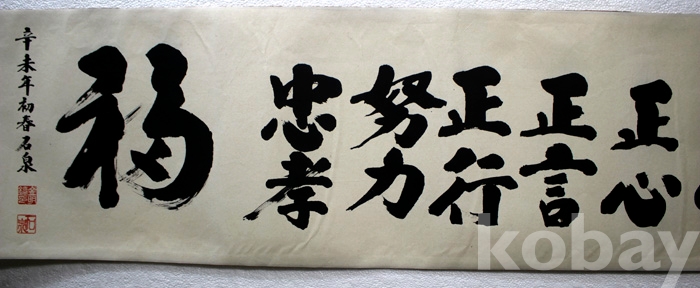 正心
正言
正行
努力
忠孝
福
辛未年初春石泉
kobay